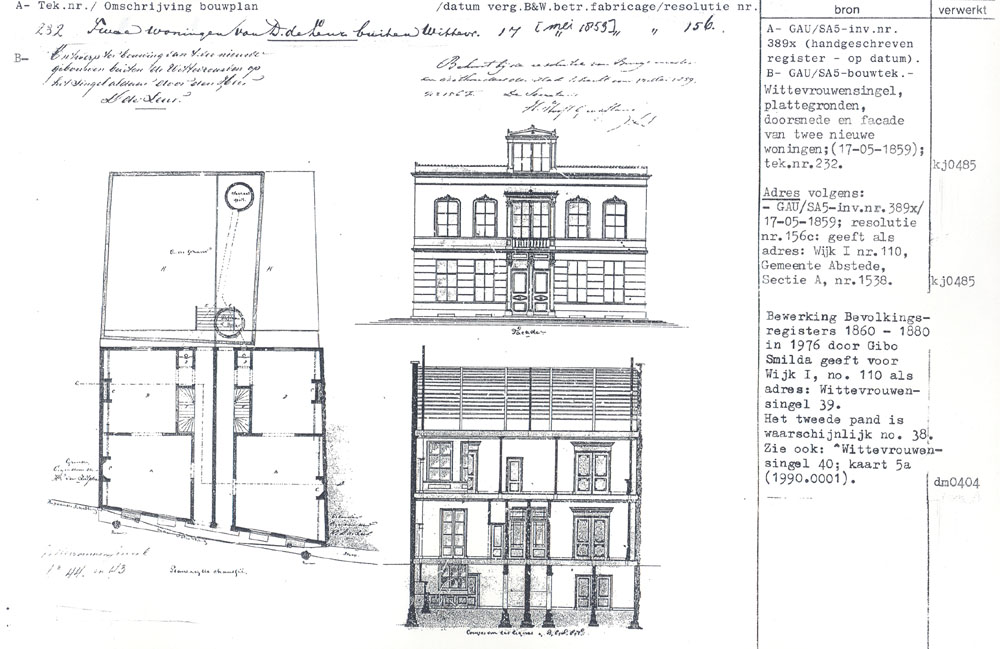 A- Tek.nr./ Omschrijving bouwplan /datum verg.B&W.betr.fabricage/resolutie nr.
bron
verwerkt
232 Twee woningen van D. de Leur buiten Wittevr. 17 [mei 1859] " " 156.
B- Ontwerp ter bouwing van twee nieuwe
gebouwen buiten de Wittevrouwen op
het Singel aldaar door den Heer
D de Leur.
Behoort bij de resolutie van Burgemeester
en Wethouders der Stad Utrecht van 17 Mei 1859.
De Secretaris
A- GAU/SA5-inv.nr.
389x (handgeschreven
register - op datum).
B- GAU/SA5-bouwtek.-
Wittevrouwensingel,
plattegronden,
doorsnede en facade
van twee nieuwe
woningen;(17-05-1859);
tek.nr.232.
kj0485
Adres volgens:
- GAU/SA5-inv.nr.389x/
17-05-1859; resolutie
nr.156c: geeft als
adres: Wijk I nr.110,
Gemeente Abstede,
Sectie A, nr.1538.
kj0485
Bewerking Bevolkings-
registers 1860 - 1880
in 1976 door Gibo
Smilda geeft voor
Wijk I, no. 110 als
adres: Wittevrouwen-
singel 39.
Het tweede pand is
waarschijnlijk no. 38.
Zie ook: ^Wittevrouwen-
singel 40; kaart 5a
(1990.0001).
dm0404
H
H
Facade
B
B
A
A
No 44. en 43